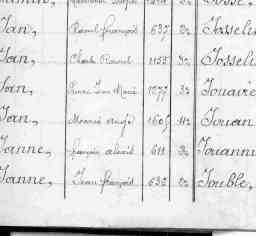 Jan, Raoul françois 637 32 Josselin
Jan, Charles Raoul 1155 32 Josselin
Jan, Pierre Jean Marie 1277 32 Jouaire
Jan, 1605 Jouan
Janne, françois alexis 611 32 Jouanni
Janne, Jean françois 632 32 Jouble,